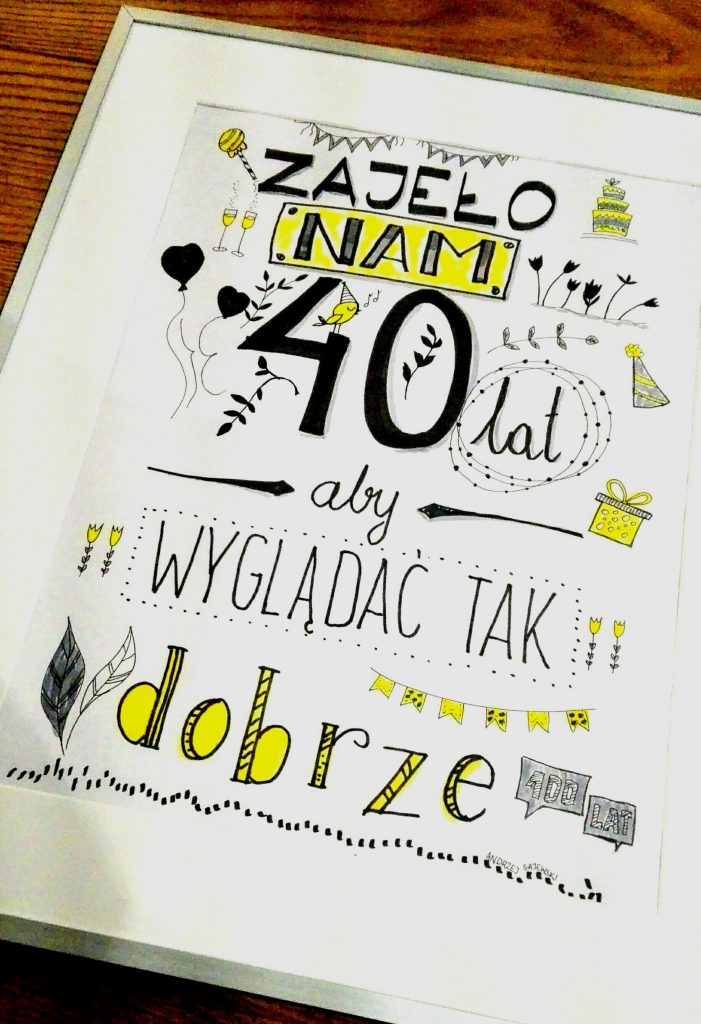 ZAJEŁO
NAM
40 lat
aby
WYGLĄDAĆ TAK
dobrze
100
LAT
ANDRZEJ GAJEWSKI